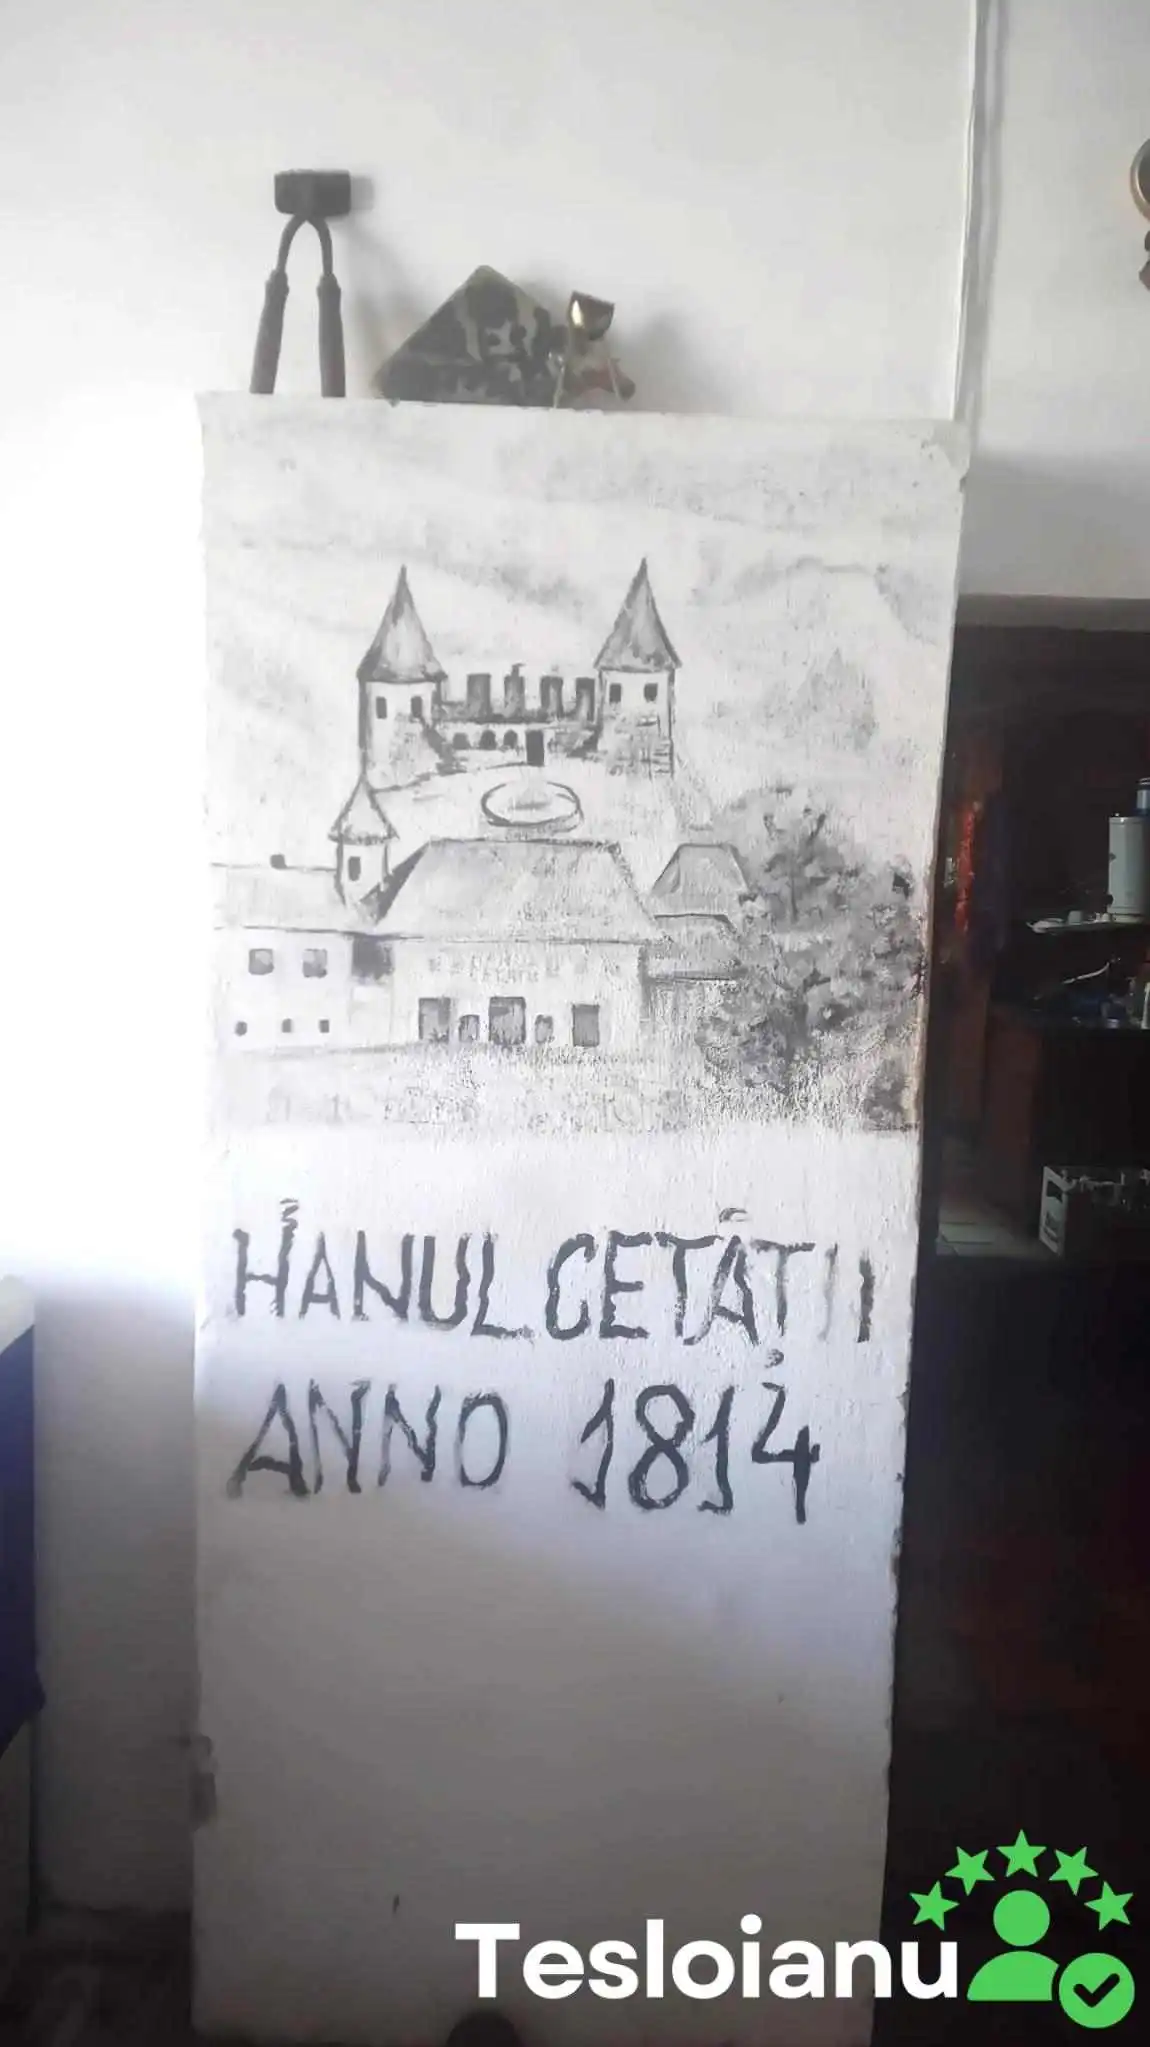 HANUL CETĂȚII
ANNO 1814
Tesloianu